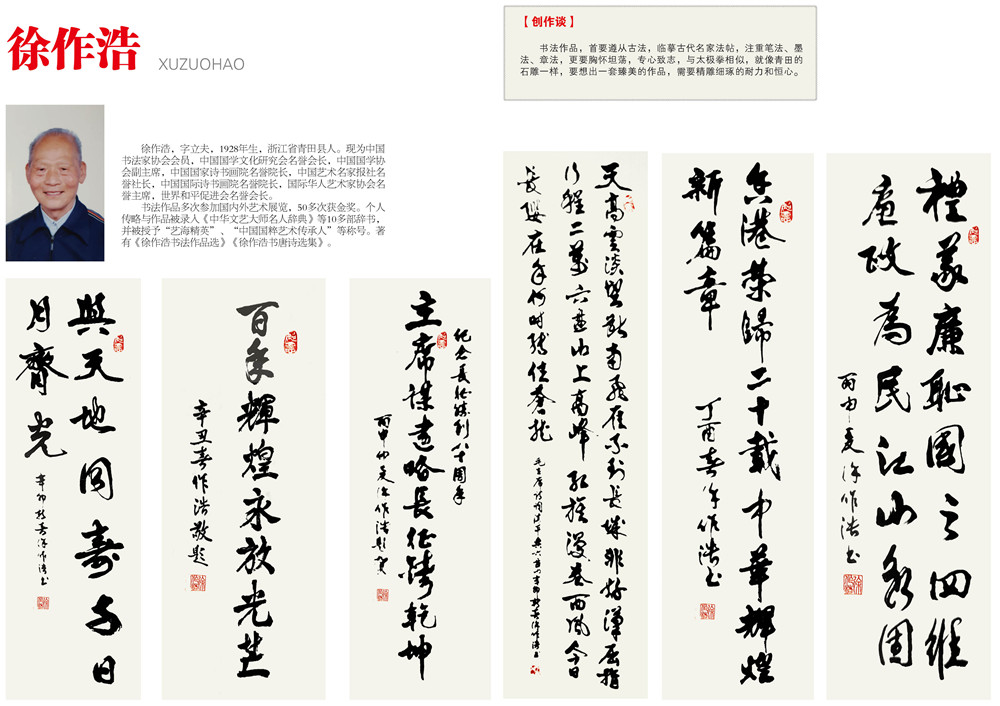 徐作浩
XUZUOHAO
【创作谈】
书法作品，首要遵从古法，临摹古代名家法帖，注重笔法、墨
法、章法，更要胸怀坦荡，专心致志，与太极拳相似，就像青田的
石雕一样，要想出一套臻美的作品，需要精雕细琢的耐力和恒心。
徐作浩，字立夫，1928年生，浙江省青田县人。现为中国
书法家协会会员，中国国学文化研究会名誉会长，中国国学协
会副主席，中国国家诗书画院名誉院长，中国艺术名家报社名
誉社长，中国国际诗书画院名誉院长，国际华人艺术家协会名
誉主席，世界和平促进会名誉会长。
书法作品多次参加国内外艺术展览，50多次获金奖。个人
传略与作品被录入《中华文艺大师名人辞典》等10多部辞书，
并被授予“艺海精英”、“中国国粹艺术传承人”等称号。著
有《徐作浩书法作品选》《徐作浩书唐诗选集》。
禮義廉恥國之四維
廉政為民江山永固
丙申夏徐作浩书
香港荣歸二十載中華輝煌
新篇章
丁酉春徐作浩书
天高雲淡望斷南飛雁不到長城非好漢屈指
行程二萬六盘山上高峰红旗漫卷西风今日
長纓在手何时缚住苍龙
纪念長征勝利八十周年
主席謀遠略長征铸乾坤
丙申仲夏徐作浩题贺
百年輝煌永放光芒
辛丑春作浩敬题
與天地同壽与日
月齊光
辛卯秋月徐作浩书